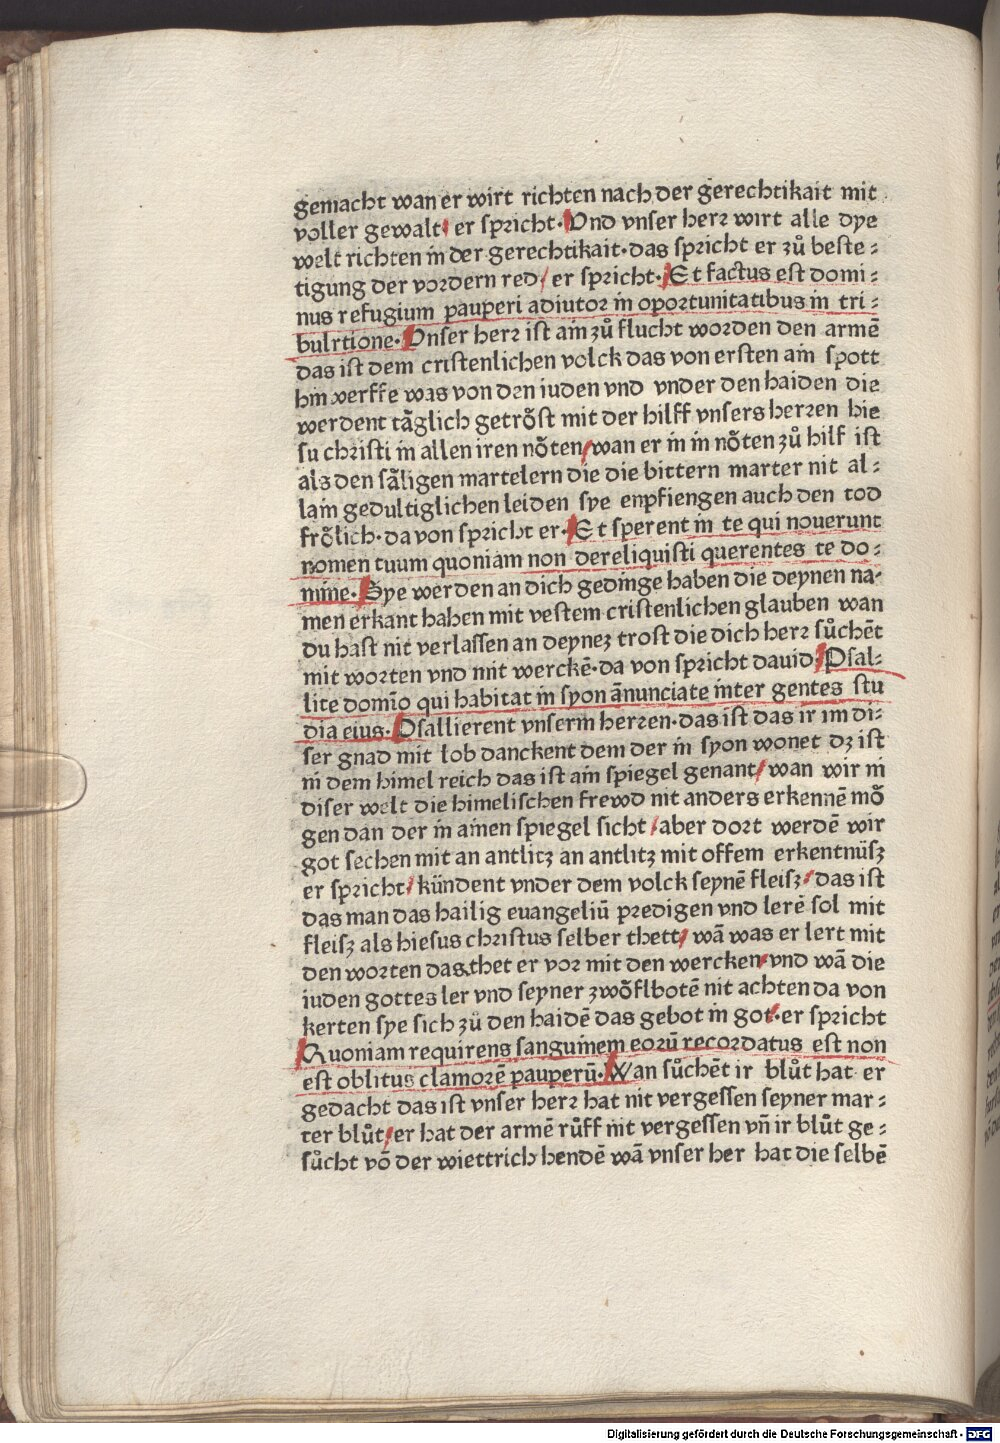 gemacht wan er wirt richten nach der gerechtikait mit
voller gewalt / er spricht· Vnd vnser herr wirt alle dye
welt richten in der gerechtikait· das spricht er zů beste⸗
tigung der vordern red / er spricht· Et factus est domi⸗
nus refugium pauperi adiutor in oportunitatibus in tri⸗
bulrtione· Vnser herr ist ain zů flucht worden den armē
das ist dem cristenlichen volck das von ersten ain spott
hin werffe was von den iuden vnd vnder den haiden die
werdent tåglich getrőst mit der hilff vnsers herren hie
su christi in allen iren nőten / wan er in in nőten zů hilf ist
als den såligen martelern die die bittern marter nit al⸗
lain gedultiglichen leiden sye enpfiengen auch den tod
frőlich· da von spricht er· Et sperent in te qui nouerunt
nomen tuum quoniam non dereliquisti querentes te do⸗
mine· Sye werden an dich gedinge haben die deynen na⸗
men erkant haben mit vestem cristenlichen glauben wan
du hast nit verlassen an deynez trost die dich herr sůchēt
mit worten vnd mit werckē· da von spricht dauid / Psal⸗
lite domīo qui habitat in syon ānunciate inter gentes stu
dia eius· Psallierent vnserm herren· das ist das ir im di⸗
ser gnad mit lob danckent dem der in syon wonet dz ist
in dem himel reich das ist ain spiegel genant / wan wir in
diser welt die himelischen frewd nit anders erkennē mő
gen dan der in ainen spiegel sicht / aber dort werdē wir
got sechen mit an antlitz an antlitz mit offem erkentnüsz
er spricht / kündent vnder dem volck seynē fleisz / das ist
das man das hailig euangeliū predigen vnd lerē sol mit
fleisz als hiesus christus selber thett / wā was er lert mit
den worten das thet er vor mit den wercken / vnd wā die
iuden gottes ler vnd seyner zwőlfbotē nit achten da von
kerten sye sich zů den haidē das gebot in got· er spricht
Quoniam requirens sanguinem eorū recordatus est non
est oblitus clamorē pauperū· Wan sůchēt ir blůt hat er
gedacht das ist vnser herr hat nit vergessen seyner mar⸗
ter blůt / er hat der armē růff nit vergessen vn̄ ir blůt ge⸗
sůcht vō der wiettrich hendē wā vnser her hat die selbē
Digitalisierung gefördert durch die Deutsche Forschungsgemeinschaft - DFG